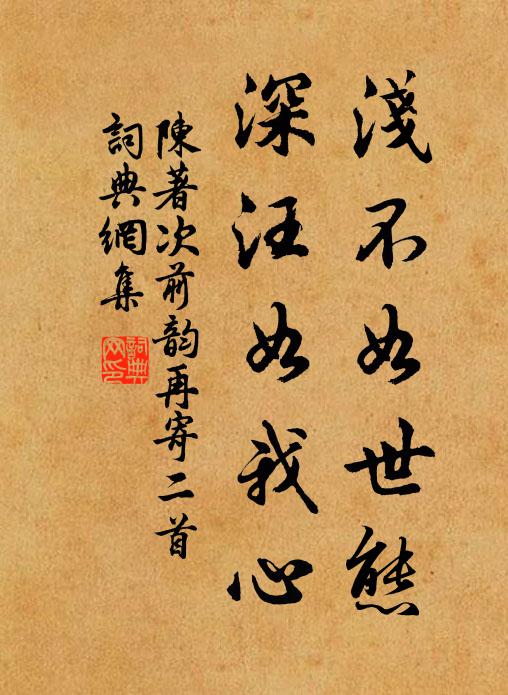 淺不如世態
深汪如我心
陳著次前韵再寄二首
詞典網集
詞典網印